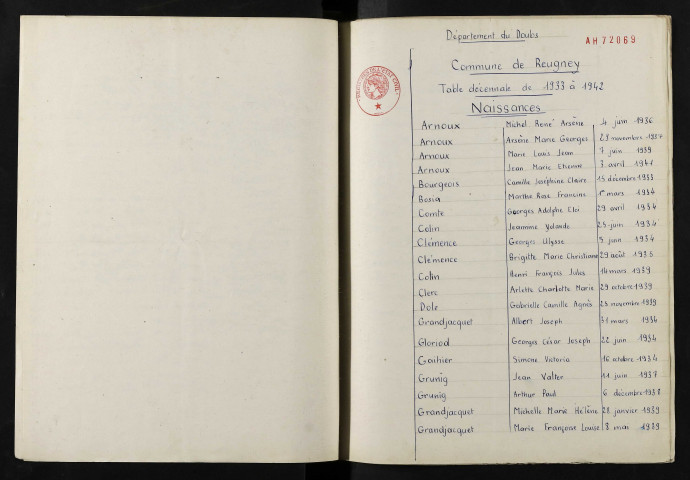 Département du Doubs
AH72069
Commune de Reugney
Table décennale de 1933 à 1942
Naissances
Arnoux Michel René Arsène 4 juin 1936
Arnoux Arsène Marie Georges 23 novembre 1937
Arnoux Marie Louis Jean 7 juin 1939
Arnoux Jean Marie Etienne 3 avril 1941
Bourgeois Camille Joséphine Claire 15 décembre 1933
Bosia Marthe Rose Francine 1er mars 1934
Comte Georges Adolphe Eloi 29 avril 1934
Colin Jeannine Yolande 25 juin 1934
Clémence Georges Ulysse 9 juin 1934
Clémence Brigitte Marie Christiane 29 août 1935
Colin Henri François Jules 14 mars 1939
Clerc Arlette Charlotte Marie 29 octobre 1939
Dole Gabrielle Camille Agnès 23 novembre 1939
Grandjacquet Albert Joseph 31 mars 1934
Gloriod Georges César Joseph 22 juin 1934
Simone 16 octobre 1934
Grunig Jean Valter 11 juin 1937
Grunig Arthur Paul 6 décembre 1938
Grandjacquet Michelle Marie Hélène 28 janvier 1939
Grandjacquet Marie Françoise Louise 8 mai 1939